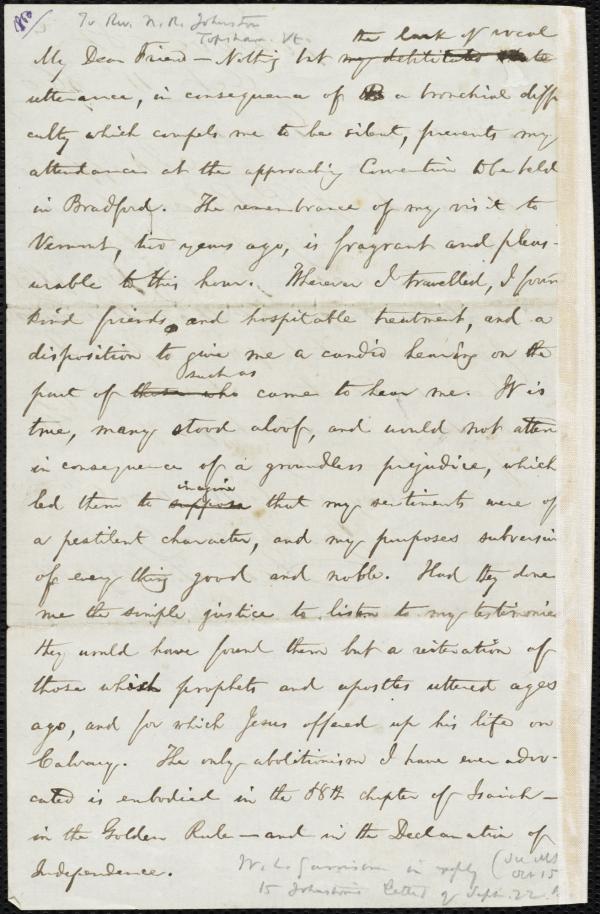 To Rev. N. R. Johnston
Topsham. Vt.
the lack of vocal
My Dear Friend — Nothing but
utterance, in consequence of a bronchial diffi
culty which compels me to be silent, prevents my
attendance at the approaching Convention to be held
in Bradford. The remembrance of my visit to
Vermont, two years ago, is fragrant and pleas-
urable to this hour. Wherever I travelled, I foun
kind friends, and hospitable treatment, and a
disposition to give me a candid hearing on the
such as
part of those who came to hear me. It is
true, many stood aloof, and would not atten
in consequence of a groundless prejudice, which
imagine
led them to suppose that my sentiments were of
a pestilent character, and my purposes subversiv
of every thing good and noble. Had they done
me the simple justice to listen to my testimonie
they would have found them but a reiteration of
those which prophets and apostles uttered ages
ago, and for which Jesus offered up his life on
Calvary. The only abolitionism I have ever advo-
cated is embodied in the 58th chapter of Isaiah —
in the Golden Rule — and in the Declaration of
Independence.
W. L. Garrison in reply (See MS
Oct 15
15 Johnston's Letter of Sept. 22.